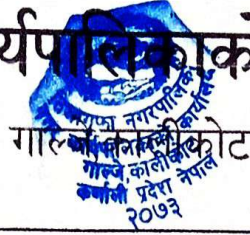 र्यपालिकाक
गाल्जे, कालीकोट
नगरपालिका
कार्यालय
गाल्जे, कालीकोट
कर्णाली प्रदेश नेपाल
२०७३